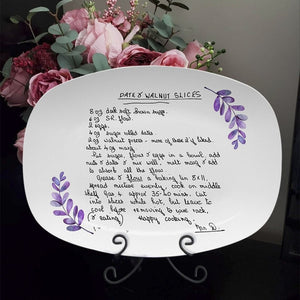 DATE & WALNUT SLICES
8 oz dark soft brown sugar.
4 oz S.R. flour.
2 eggs.
4 oz sugar rolled dates
2 oz walnut pieces - more of these 2 if liked
about 4 oz marg.
Put sugar, flour & eggs in a bowl, add
nuts & dates & mix well. Melt marg & add
to absorb all the flour
Grease & flour a baking tin 8x11.
spread mixture evenly, cook on middle
shelf gas 4 approx 35-40 mins. Cut
into slices while hot, but leave to
cool before removing to wire rack,
(or eating) Happy cooking.